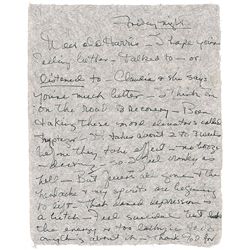 Friday night
Dear old Harris – I hope you're
feeling better – talked to – or
listened to – Claudia & she says
you're much better – I think I'm
on the road to recovery – Been
taking these mood elevators called
– It takes about 2 to 3 weeks
before they take effect – no booze
– – so I feel cranky as
hell – But Junes all gone & the
headache & my spirits are beginning
to lift – That damned depression is
a bitch – I feel suicidal but lack
the energy & too lazy to do
anything about it – Thank God for